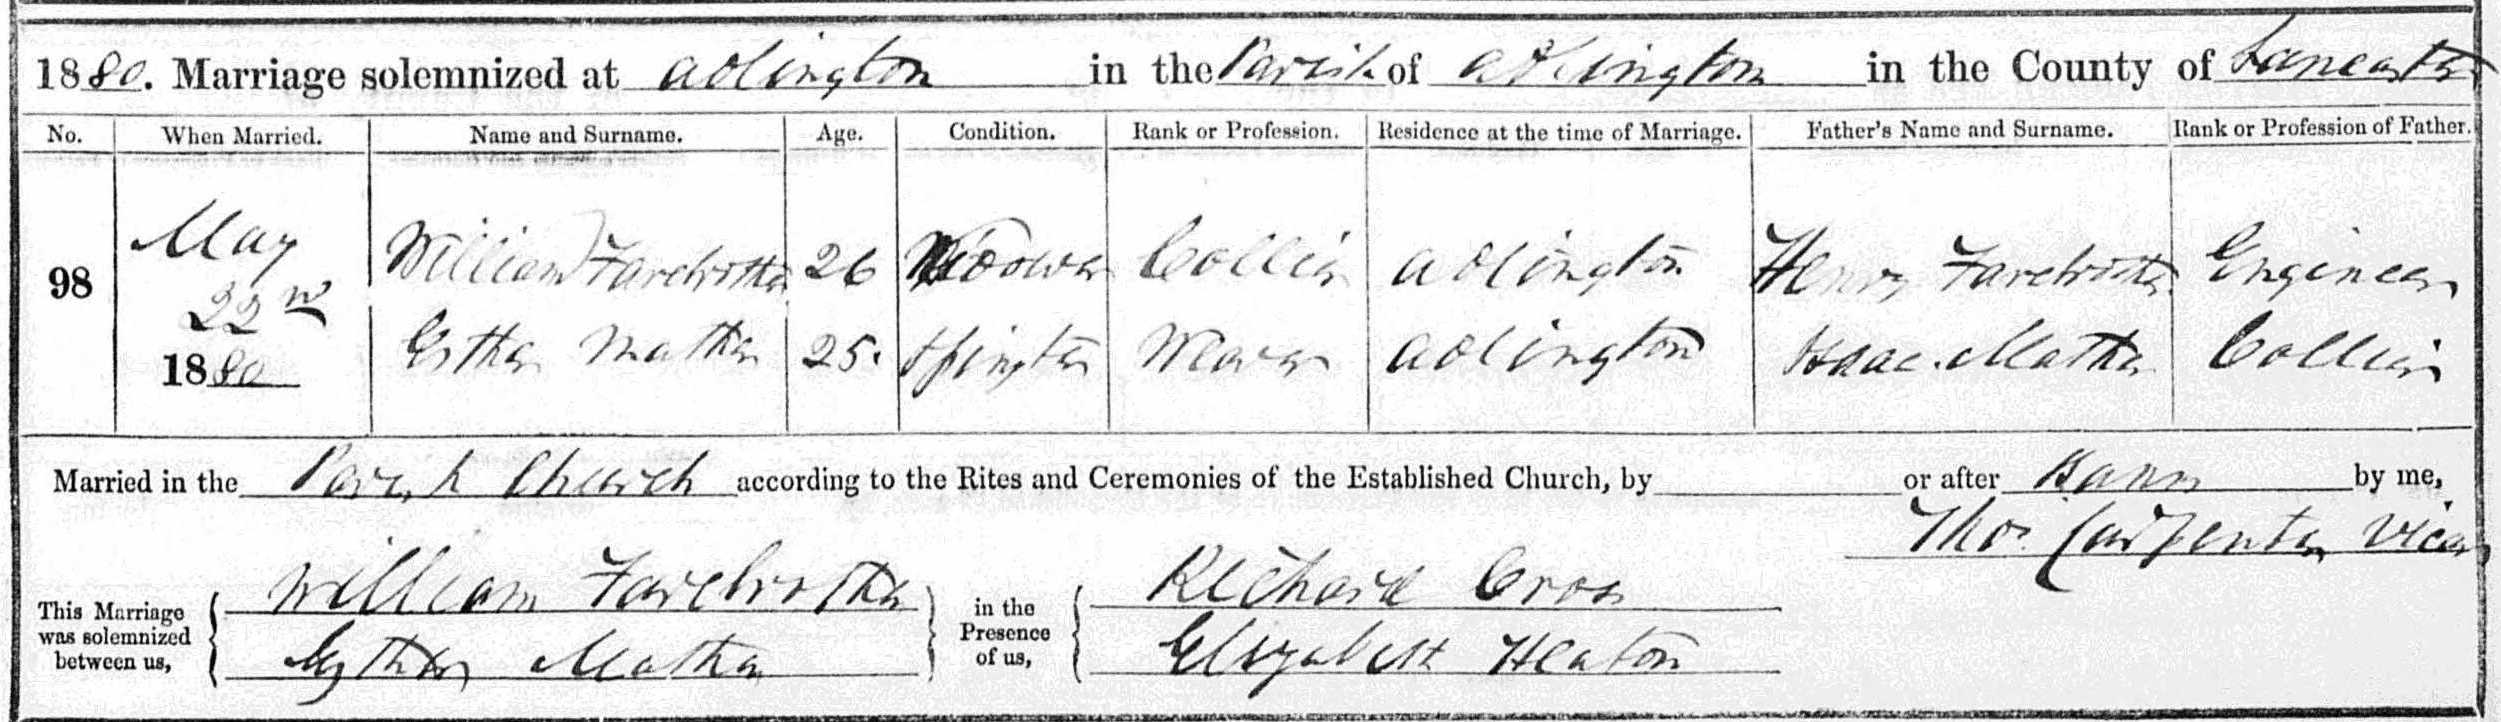 1880. Marriage solemnized at Adlington in the Parish of Adlington in the County of Lancaster
No. When Married. Name and Surname. Age. Condition. Rank or Profession. Residence at the time of Marriage. Father's Name and Surname. Rank or Profession of Father.
98 May 22nd 1880 William Farebrother 26 Widower Collier Adlington Henry Farebrother Engineer
Esther Mather 25. Spinster Weaver Adlington Isaac Mather Collier
Married in the Parish Church according to the Rites and Ceremonies of the Established Church, by or after Banns by me,
Thos. Carpenter Vicar
This Marriage was solemnized between us, William Farebrother in the Presence of us, Richard Cross
Esther Mather Elizabeth Heaton